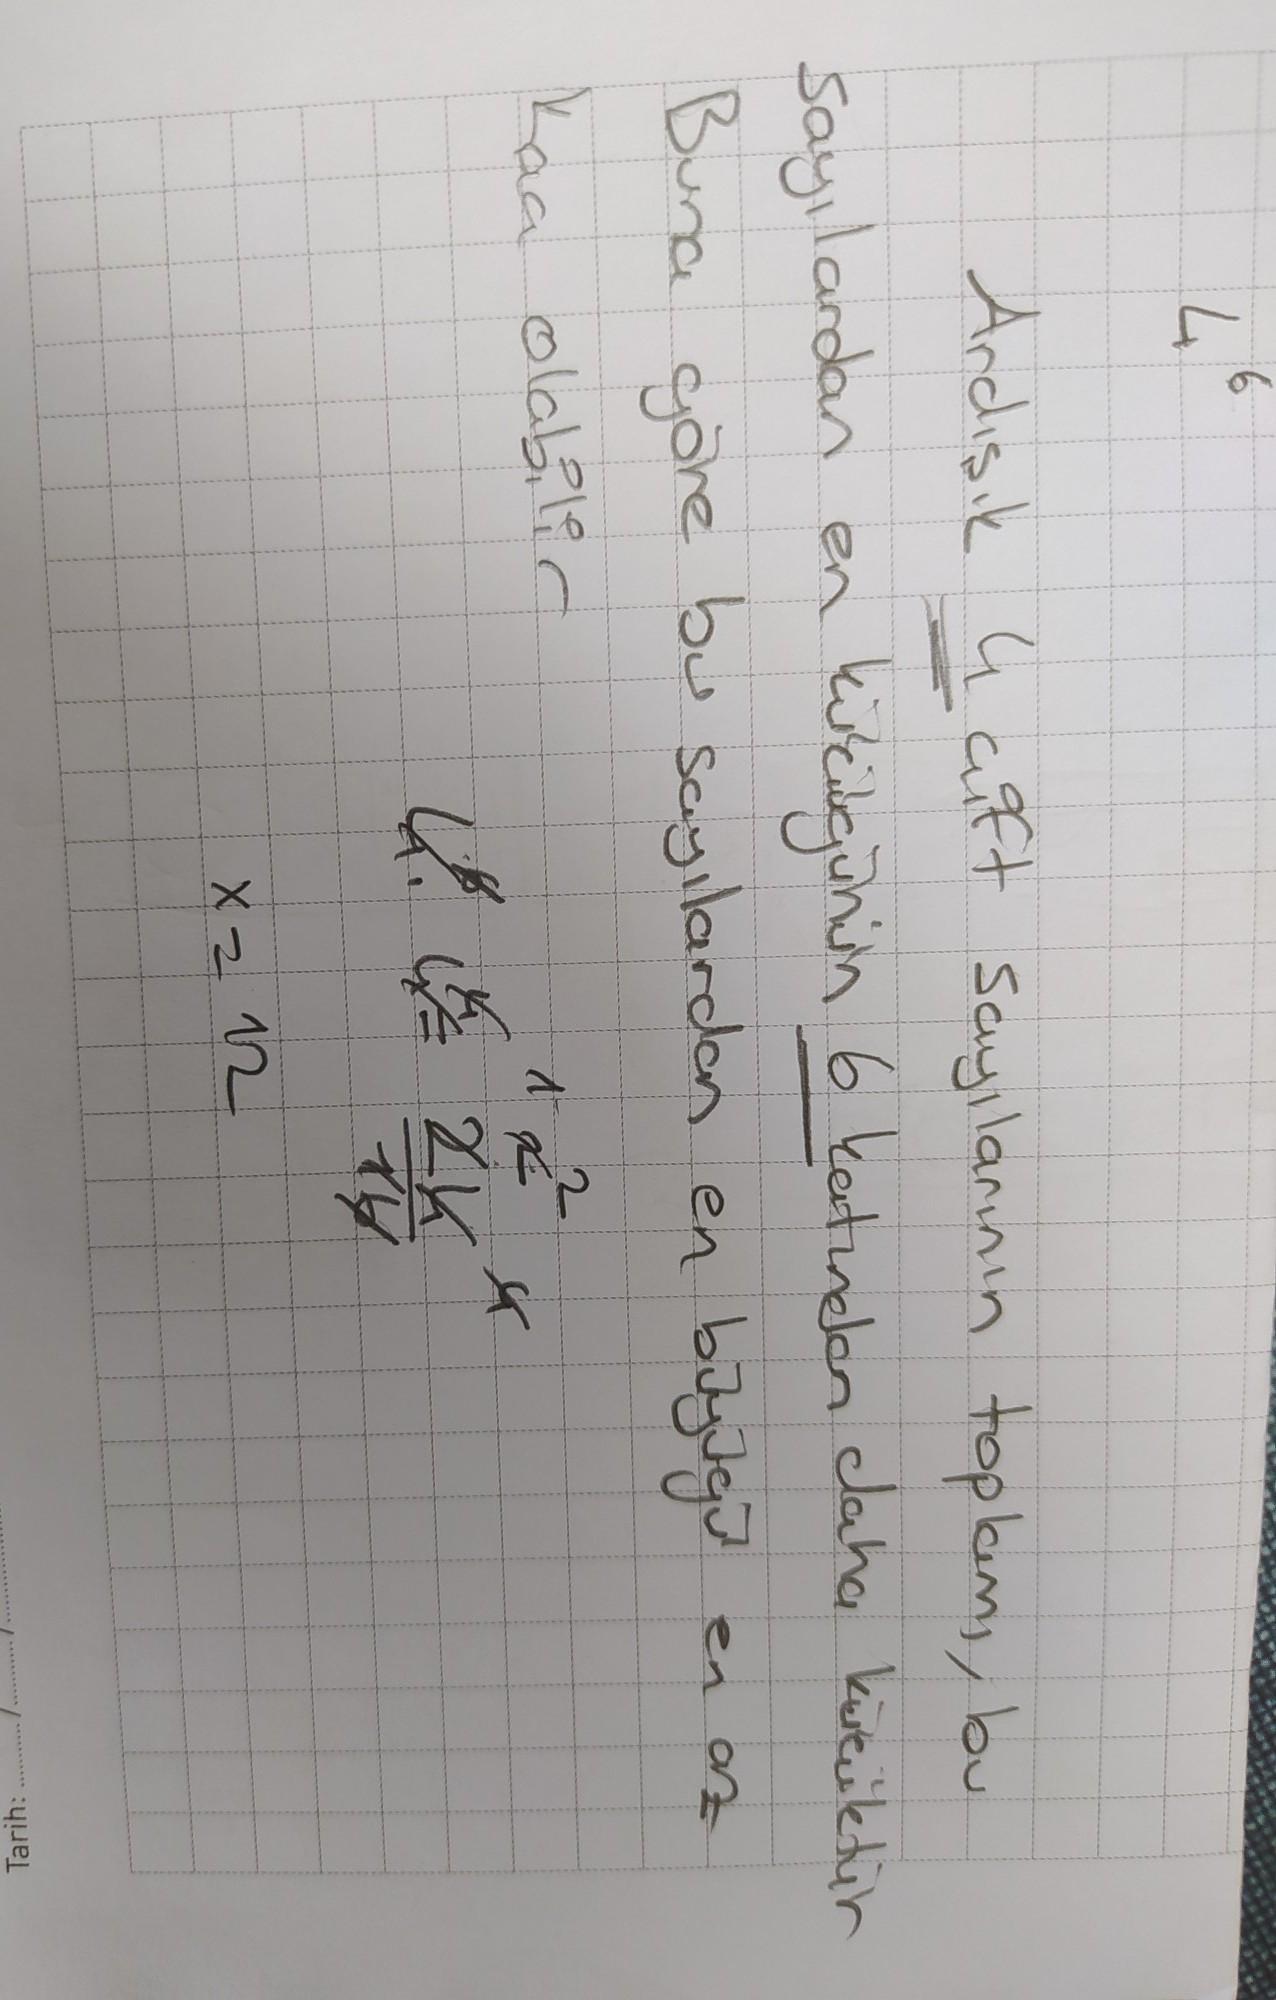 6
4
Ardışık 4 çift sayıların toplamı, bu
sayılardan en küçüğünün 6 katından daha küçüktür
Buna göre bu sayılardan en büyüğü en az
kaç olabilir
x = 12
Tarih: ........../........../..........